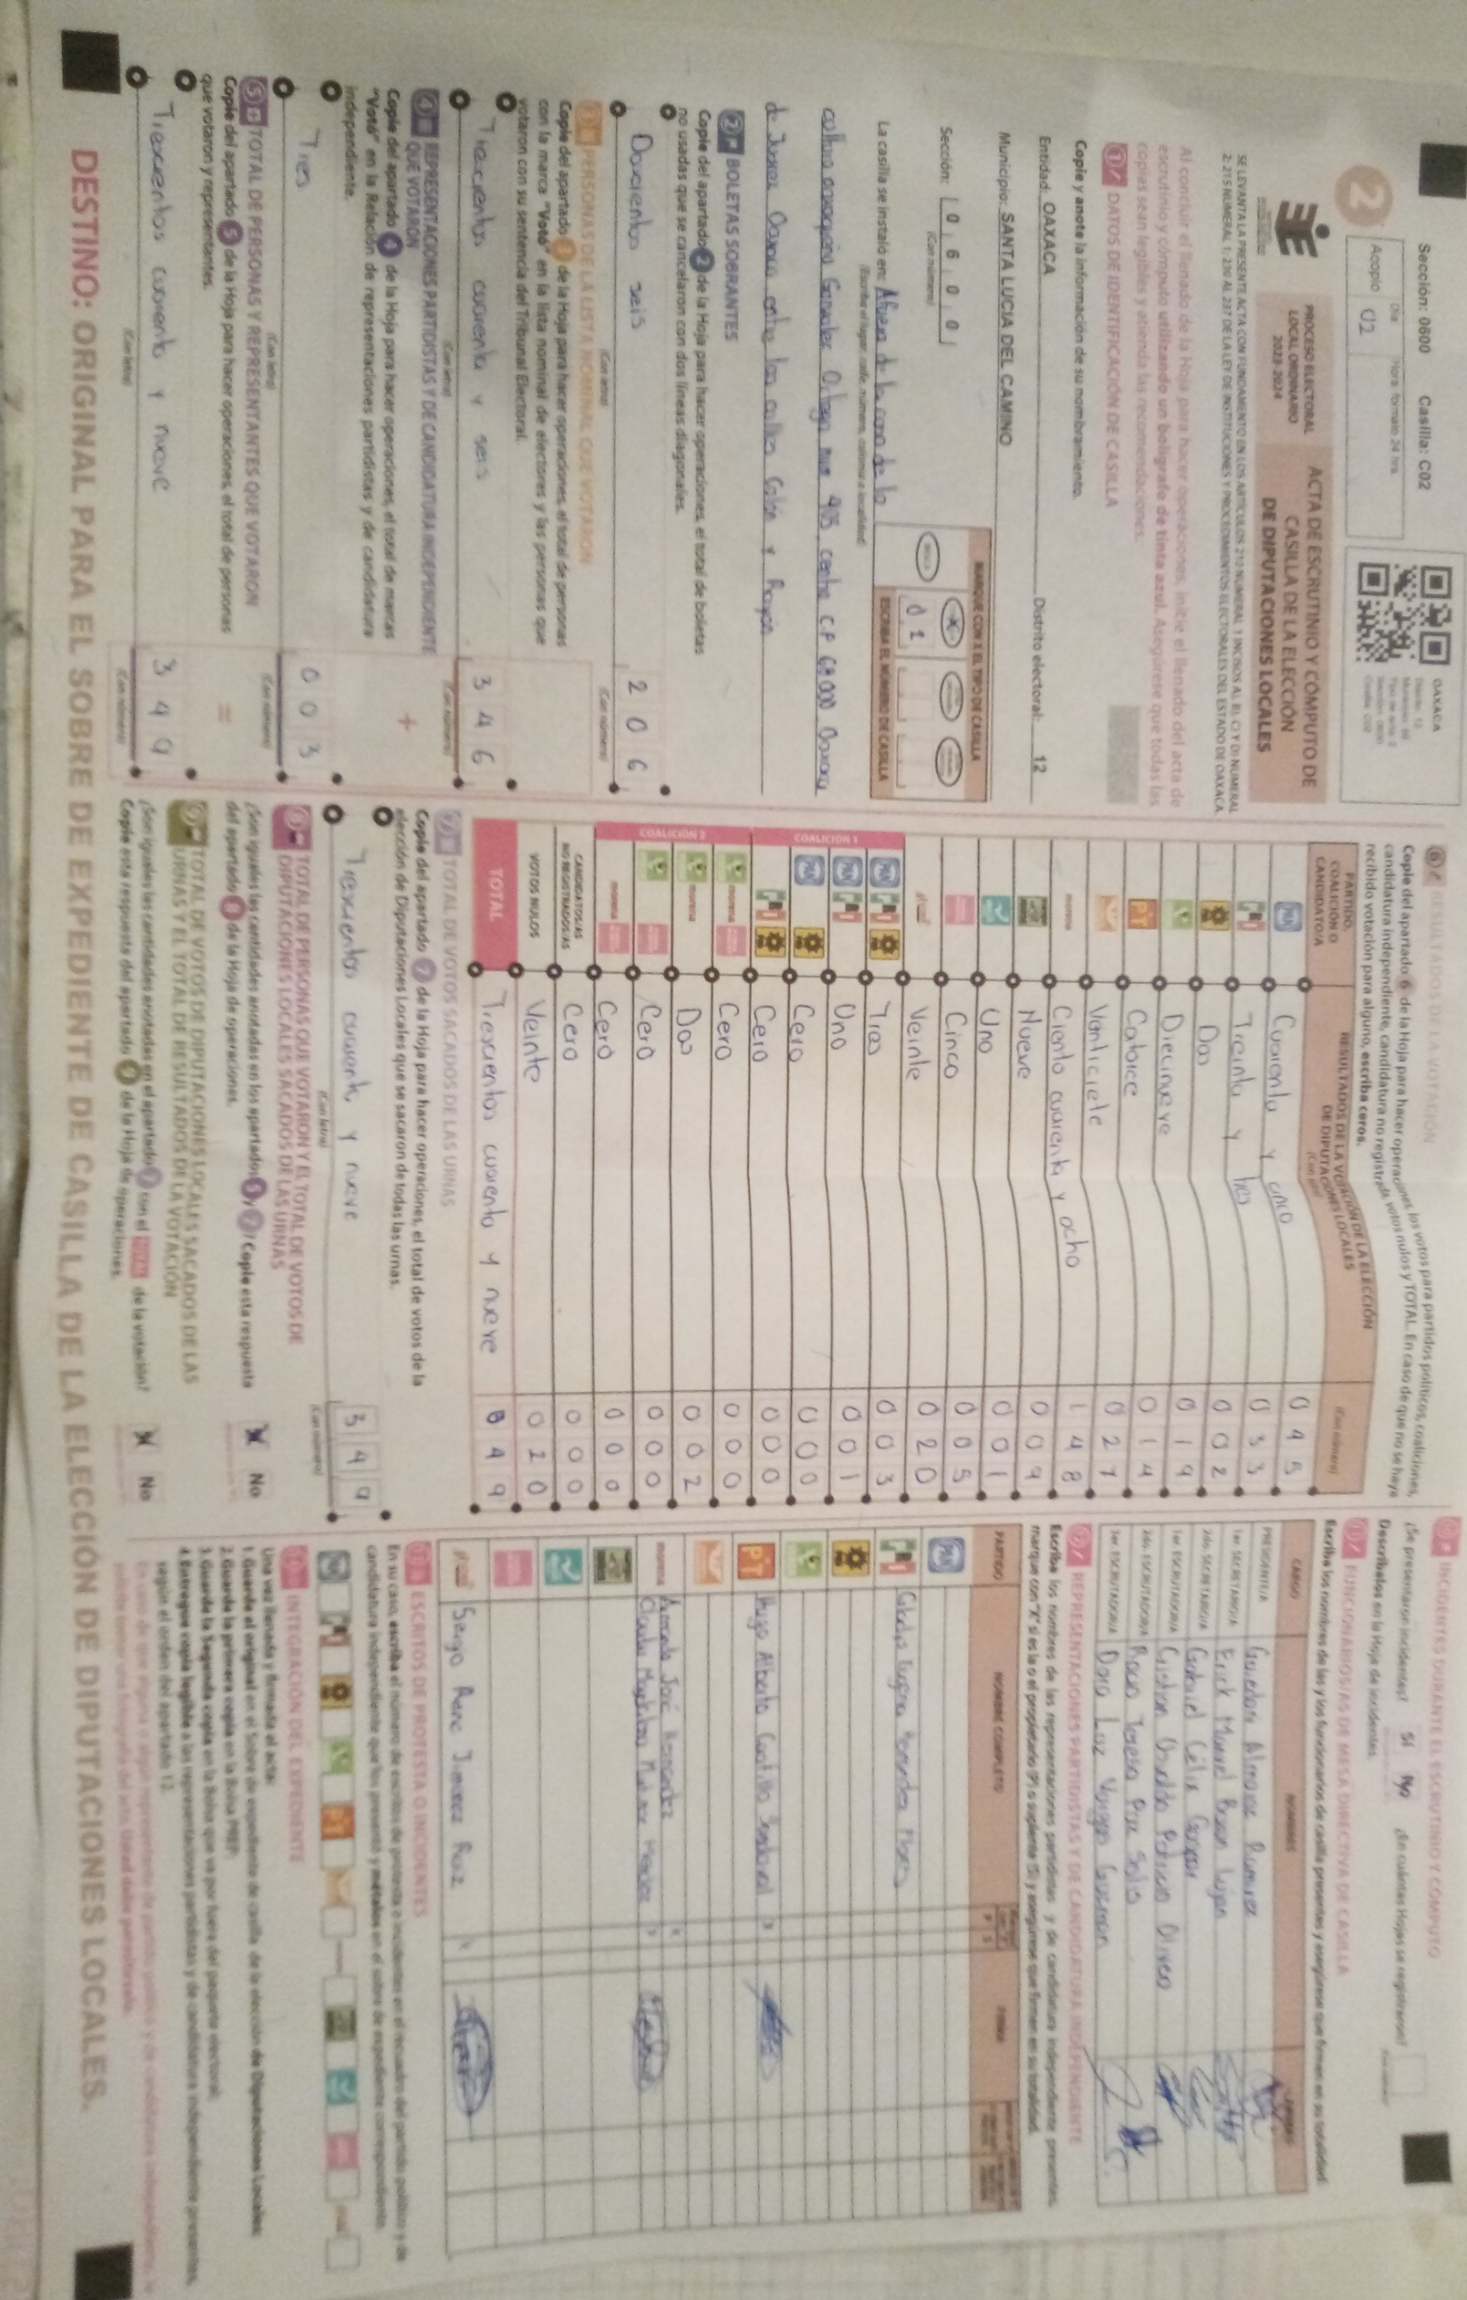 Sección: 0600 Casilla: C02
Día Hora formato 24 hrs.
Acopio 02
2
OAXACA
PROCESO ELECTORAL
LOCAL ORDINARIO
2023-2024
ACTA DE ESCRUTINIO Y CÓMPUTO DE
CASILLA DE LA ELECCIÓN
DE DIPUTACIONES LOCALES
Al concluir el llenado de la Hoja para hacer operaciones, inicie el llenado del acta de
escrutinio y cómputo utilizando un bolígrafo de tinta azul. Asegúrese que todas las
copias sean legibles y atienda las recomendaciones.
1 DATOS DE IDENTIFICACIÓN DE CASILLA
Copie y anote la información de su nombramiento.
Entidad: OAXACA Distrito electoral: 12
Municipio: SANTA LUCIA DEL CAMINO
Sección: 0 6 0 0
(Con número)
MARQUE CON X EL TIPO DE CASILLA
ESCRIBA EL NÚMERO DE CASILLA
0 2
La casilla se instaló en: Afuera de la casa de la
cultura oaxaqueña González Ortega num 403 centro C.P 68000 Oaxaca
de Juárez Oaxaca entre las calles Colón y Rayon
2 BOLETAS SOBRANTES
Copie del apartado 2 de la Hoja para hacer operaciones, el total de boletas
no usadas que se cancelaron con dos líneas diagonales.
Doscientos seis 2 0 6
(Con letra) (Con número)
3 PERSONAS DE LA LISTA NOMINAL QUE VOTARON
Copie del apartado 3 de la Hoja para hacer operaciones, el total de personas
con la marca "Votó" en la lista nominal de electores y las personas que
votaron con su sentencia del Tribunal Electoral.
Trescientos cuarenta y seis 3 4 6
(Con letra) (Con número)
4 REPRESENTACIONES PARTIDISTAS Y DE CANDIDATURA INDEPENDIENTE
QUE VOTARON
Copie del apartado 4 de la Hoja para hacer operaciones, el total de marcas
"Votó" en la Relación de representaciones partidistas y de candidatura
independiente.
+
Tres 0 0 3
(Con letra) (Con número)
5 TOTAL DE PERSONAS Y REPRESENTANTES QUE VOTARON
Copie del apartado 5 de la Hoja para hacer operaciones, el total de personas
que votaron y representantes.
=
Trescientos cuarenta y nueve 3 4 9
(Con letra) (Con número)
6 RESULTADOS DE LA VOTACIÓN
Copie del apartado 6 de la Hoja para hacer operaciones, los votos para partidos políticos, coaliciones,
candidatura independiente, candidatura no registrada, votos nulos y TOTAL. En caso de que no se haya
recibido votación para alguno, escriba ceros.
PARTIDO,
COALICIÓN O
CANDIDATO/A
RESULTADOS DE LA VOTACIÓN DE LA ELECCIÓN
DE DIPUTACIONES LOCALES
(Con número)
PAN Cuarenta y cinco 0 4 5
Treinta y tres 0 3 3
Dos 0 0 2
Diecinueve 0 1 9
PT Catorce 0 1 4
Venticiete 0 2 7
morena Ciento cuarenta y ocho 1 4 8
Nueve 0 0 9
Uno 0 0 1
Cinco 0 0 5
Veinte 0 2 0
COALICIÓN 1
Tres 0 0 3
Uno 0 0 1
Cero 0 0 0
Cero 0 0 0
COALICIÓN 2
morena Cero 0 0 0
morena Dos 0 0 2
Cero 0 0 0
morena Cero 0 0 0
CANDIDATOS/AS
NO REGISTRADOS/AS Cero 0 0 0
VOTOS NULOS Veinte 0 2 0
TOTAL Trescientos cuarenta y nueve 3 4 9
7 TOTAL DE VOTOS SACADOS DE LAS URNAS
Copie del apartado 7 de la Hoja para hacer operaciones, el total de votos de la
elección de Diputaciones Locales que se sacaron de todas las urnas.
Trescientos cuarenta y nueve 3 4 9
(Con letra) (Con número)
8 TOTAL DE PERSONAS QUE VOTARON Y EL TOTAL DE VOTOS DE
DIPUTACIONES LOCALES SACADOS DE LAS URNAS
¿Son iguales las cantidades anotadas en los apartados 5 y 7? Copie esta respuesta
del apartado 8 de la Hoja de operaciones. No
9 TOTAL DE VOTOS DE DIPUTACIONES LOCALES SACADOS DE LAS
URNAS Y EL TOTAL DE RESULTADOS DE LA VOTACIÓN
¿Son iguales las cantidades anotadas en el apartado 7 con el TOTAL de la votación?
Copie esta respuesta del apartado 9 de la Hoja de operaciones. No
INCIDENTES DURANTE EL ESCRUTINIO Y CÓMPUTO
¿Se presentaron incidentes? SI No ¿En cuántas Hojas se registraron?
Descríbalos en la Hoja de incidentes.
FUNCIONARIOS/AS DE MESA DIRECTIVA DE CASILLA
Escriba los nombres de las y los funcionarios de casilla presentes y asegúrese que firmen en su totalidad.
CARGO NOMBRE
PRESIDENTE/A Ramirez
1er. SECRETARIO/A Erick Manuel Lujan
2do. SECRETARIO/A Gabriel Celis
1er. ESCRUTADOR/A Cristian Olivera
2do. ESCRUTADOR/A Rocio Teresa Solis
3er. ESCRUTADOR/A Dora Luz Vargas Guzman
REPRESENTACIONES PARTIDISTAS Y DE CANDIDATURA INDEPENDIENTE
Escriba los nombres de las representaciones partidistas y de candidatura independiente presentes,
marque con "X" si es la o el propietario (P) o suplente (S) y asegúrese que firmen en su totalidad.
PARTIDO NOMBRE COMPLETO FIRMA
PAN
Gladis Eugenia
PT Hugo Alberto Castillo Sandoval
morena Armando José Hernandez
Sergio Rene Jimenez Ruiz
ESCRITOS DE PROTESTA O INCIDENTES
En su caso, escriba el número de escritos de protesta o incidentes en el recuadro del partido político y de
candidatura independiente que los presentó y métalos en el sobre de expediente correspondiente.
INTEGRACIÓN DEL EXPEDIENTE
Una vez llenada y firmada el acta:
1. Guarde el original en el Sobre de expediente de casilla de la elección de Diputaciones Locales.
2. Guarde la primera copia en la Bolsa PREP.
3. Guarde la Segunda copia en la Bolsa que va por fuera del paquete electoral.
4. Entregue copia legible a las representaciones partidistas y de candidatura independiente presentes,
según el orden del apartado 12.
DESTINO: ORIGINAL PARA EL SOBRE DE EXPEDIENTE DE CASILLA DE LA ELECCIÓN DE DIPUTACIONES LOCALES.